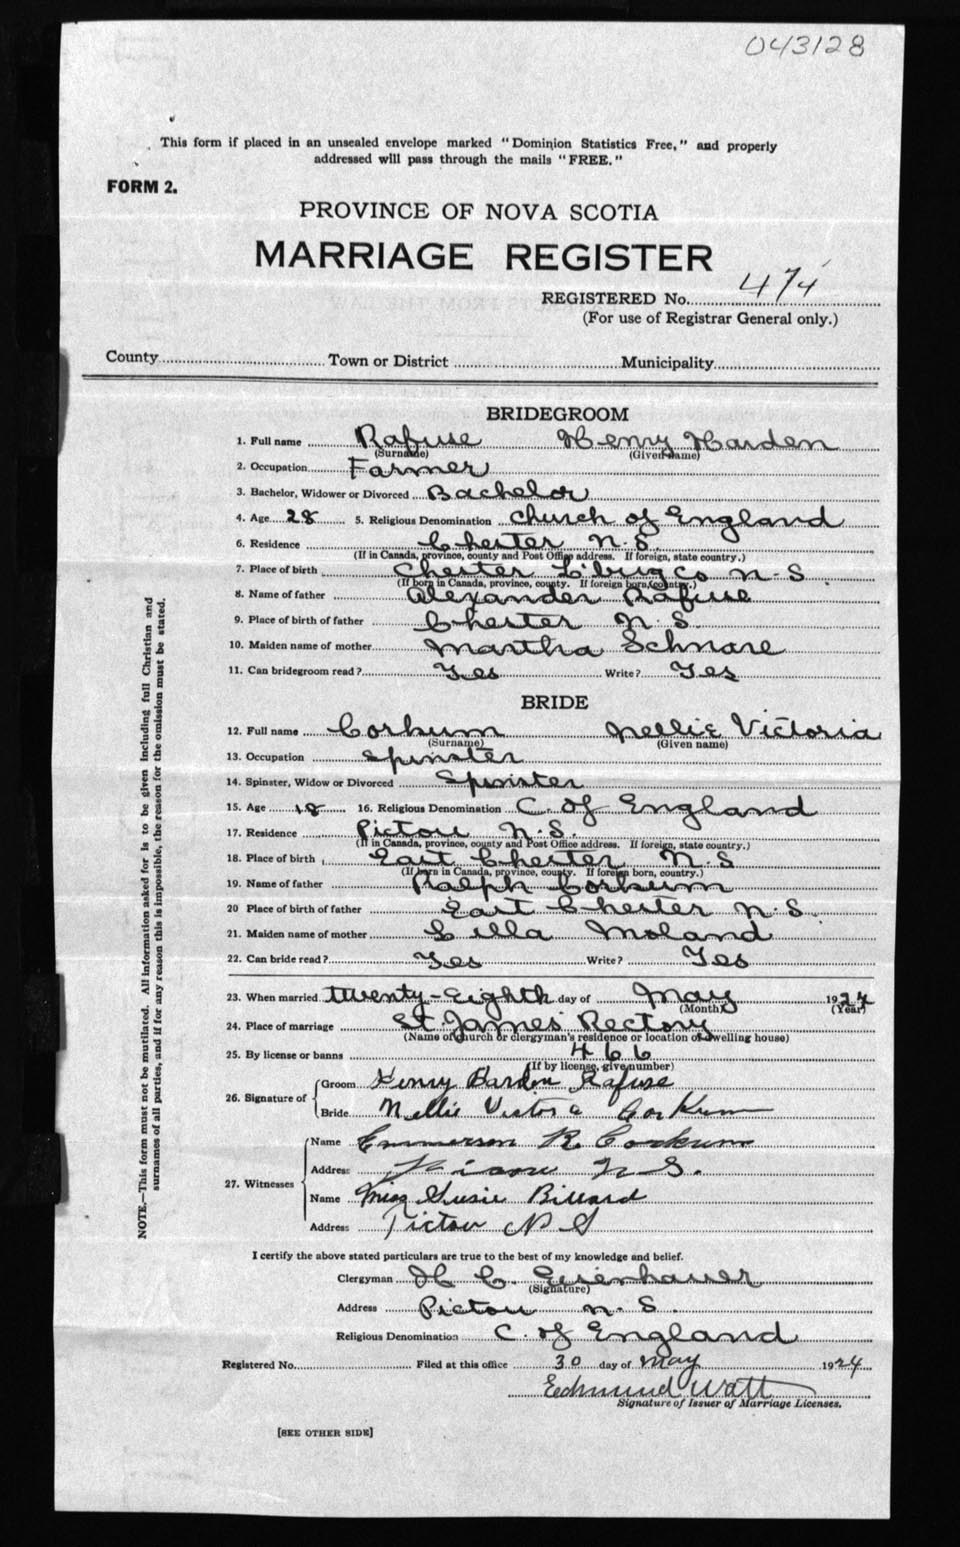 043128
This form if placed in an unsealed envelope marked "Dominion Statistics Free," and properly
addressed will pass through the mails "FREE."
FORM 2.
PROVINCE OF NOVA SCOTIA
MARRIAGE REGISTER
REGISTERED No. 474
(For use of Registrar General only.)
County Town or District Municipality
BRIDEGROOM
1. Full name Rafuse Henry Harden
(Surname) (Given name)
2. Occupation Farmer
3. Bachelor, Widower or Divorced Bachelor
4. Age 28 5. Religious Denomination Church of England
6. Residence Chester N.S.
(If in Canada, province, county and Post Office address. If foreign, state country.)
7. Place of birth Chester L'burg Co N.S.
(If born in Canada, province, county. If foreign born, country.)
8. Name of father Alexander Rafuse
9. Place of birth of father Chester N.S.
10. Maiden name of mother Martha Schnare
11. Can bridegroom read? Yes Write? Yes
BRIDE
12. Full name Corkum Nellie Victoria
(Surname) (Given name)
13. Occupation Spinster
14. Spinster, Widow or Divorced Spinster
15. Age 18 16. Religious Denomination C. of England
17. Residence Pictou N.S.
(If in Canada, province, county and Post Office address. If foreign, state country.)
18. Place of birth East Chester N.S
(If born in Canada, province, county. If foreign born, country.)
19. Name of father Ralph Corkum
20 Place of birth of father East Chester N.S.
21. Maiden name of mother Cilla Moland
22. Can bride read? Yes Write? Yes
23. When married Twenty-Eighth day of May 1924
(Month) (Year)
24. Place of marriage St. James' Rectory
(Name of church or clergyman's residence or location of dwelling house)
25. By license or banns 466
(If by license, give number)
26. Signature of Groom Henry Harden Rafuse
Bride Nellie Victoria Corkum
27. Witnesses Name Emmerson R. Corkum
Address N.S.
Name Miss Susie Billard
Address Pictou N S
I certify the above stated particulars are true to the best of my knowledge and belief.
Clergyman H C. Eisenhauer
(Signature)
Address Pictou N.S.
Religious Denomination C. of England
Registered No. Filed at this office 30 day of May 1924
Edmund Watt
Signature of Issuer of Marriage Licenses.
[SEE OTHER SIDE]
NOTE.—This form must not be mutilated. All information asked for is to be given including full Christian and
surnames of all parties, and if for any reason this is impossible, the reason for the omission must be stated.